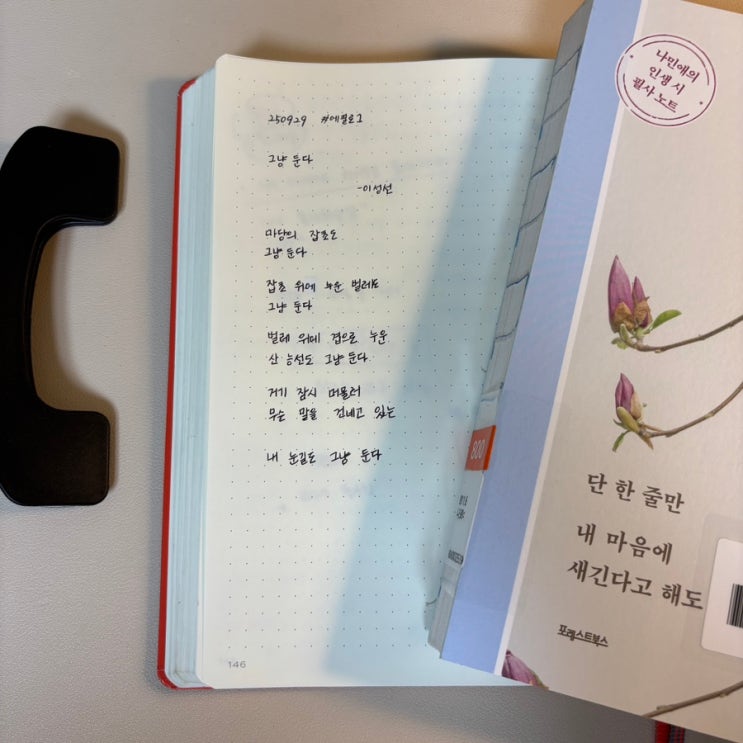 250929 #에필로그
그냥 둔다
-이성선
마당의 잡초도
그냥 둔다
잡초 위에 누운 벌레도
그냥 둔다
벌레 위에 겹으로 누운
산 능선도 그냥 둔다
거기 잠시 머물러
무슨 말을 건네고 있는
내 눈길도 그냥 둔다
146
나민애의
인생 시
필사 노트
단 한 줄만
내 마음에
새긴다고 해도
포레스트북스
800